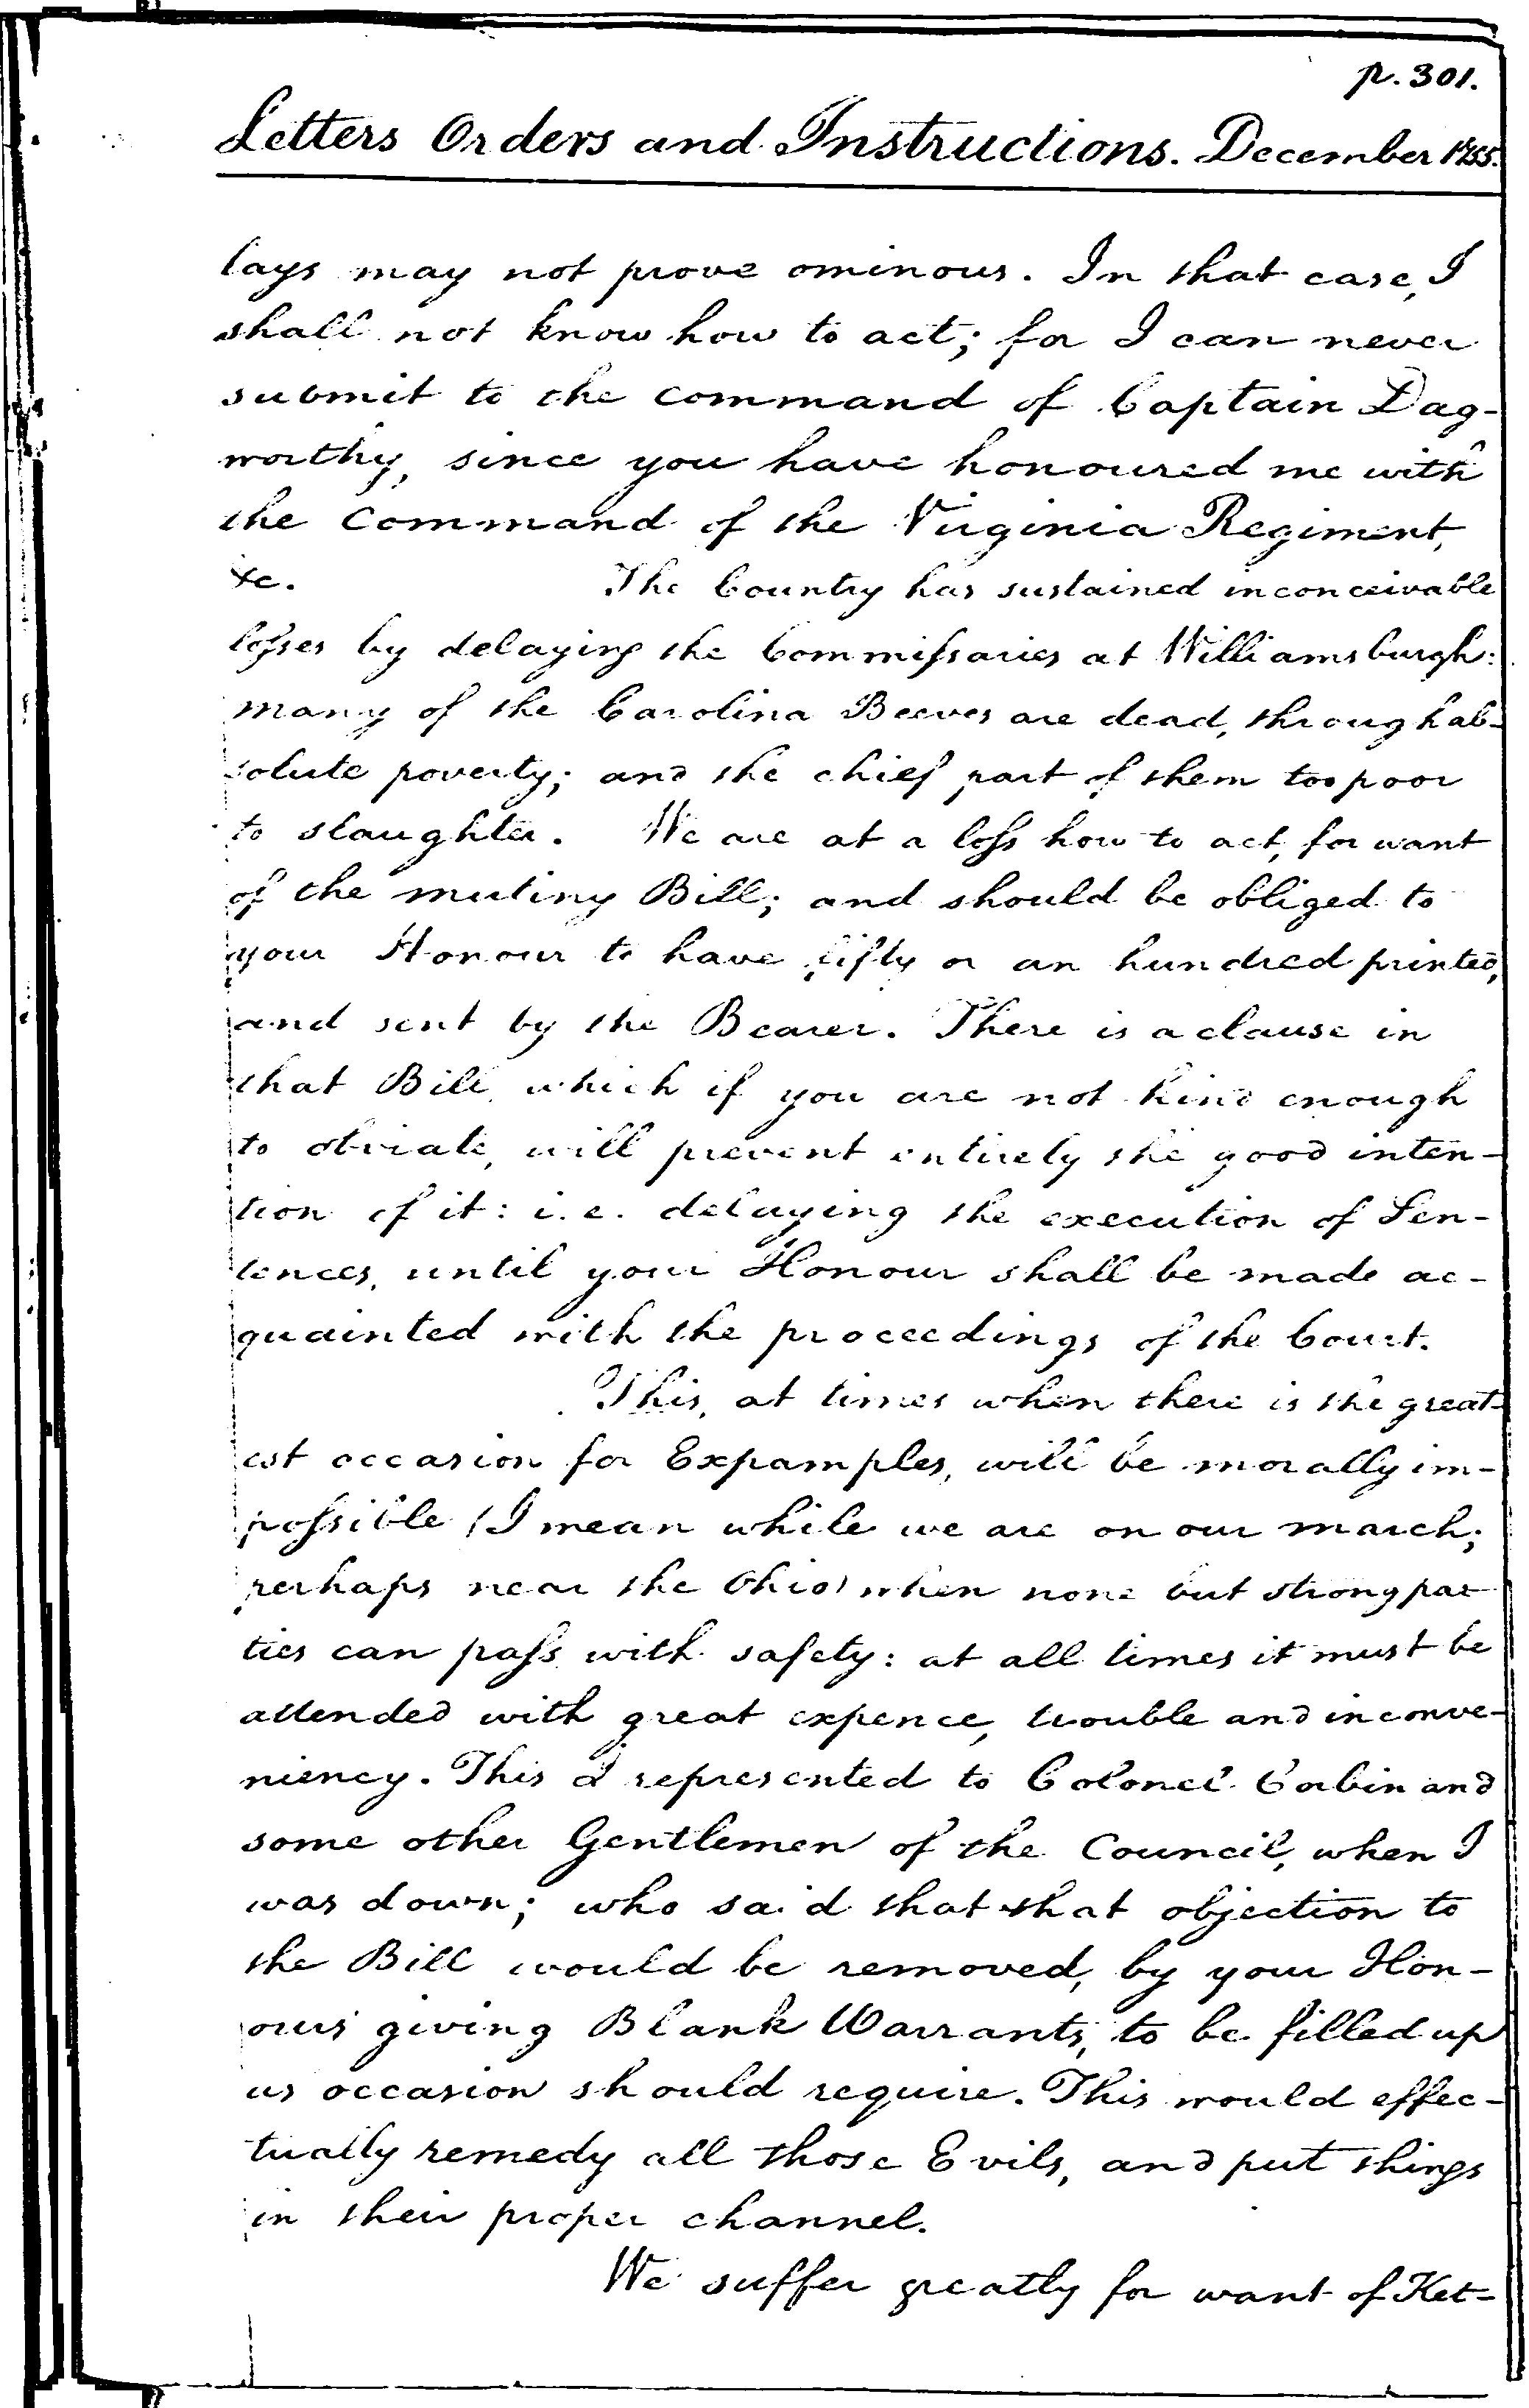 p. 301.
Letters Orders and Instructions. December 1755.
lays may not prove ominous. In that case, I
shall not know how to act; for I can never
submit to the command of Captain Dag-
worthy, since you have honoured me with
the Command of the Virginia Regiment,
&c. The Country has sustained inconceivable
losses by delaying the Commissaries at Williamsburgh:
many of the Carolina Beeves are dead, through ab-
solute poverty; and the chief part of them too poor
to slaughter. We are at a loss how to act, for want
of the mutiny Bill; and should be obliged to
your Honour to have fifty or an hundred printed,
and sent by the Bearer. There is a clause in
that Bill, which if you are not kind enough
to obviate, will prevent entirely the good inten-
tion of it: i.e. delaying the execution of Sen-
tences, until your Honour shall be made ac-
quainted with the proceedings of the Court.
This, at times when there is the great-
est occasion for Expamples, will be morally im-
possible (I mean while we are on our march;
perhaps near the Ohio) when none but strong par-
ties can pass with safety: at all times it must be
attended with great expence, trouble and inconve-
niency. This I represented to Colonel Corbin and
some other Gentlemen of the Council, when I
was down; who said that that objection to
the Bill would be removed, by your Hon-
ours giving Blank Warrants, to be filled up
as occasion should require. This would effec-
tually remedy all those Evils, and put things
in their proper channel.
We suffer greatly for want of Ket-